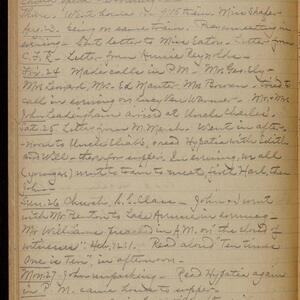 there. Went home on 4.15 train. Miss Shafer
Aug. 23. Being on same train. Prayer meeting in
evening - Sent letter to Miss Eaton. Letter from
C.F.R. - Letter from Annie Reynolds.
Fri. 24 Made calls in P.M. - Mrs. Geo. Ely -
Mrs. Leonard, Mrs. Ed Manter Mrs. Bowen. tried to
call in evening on Lucy Van Warner. Mr. & Mrs.
John Leadingham arrived at Uncle Charles'.
Sat. 25 Letter from M. March. Went in after-
noon to Uncle Chas's, read Hypatia with Edith
and Will - there for supper. In evening, we all
(youngas) went to train to meet, first Harl, then
John.
Sun. 26 Church, S.S. Class - John & I went
with Mr. Burton to Lake Avenue in evening -
Mr. Williams preached in A.M. on "the cloud of
witnesses" Heb. 12:1. Read aloud "Ten times
One is Ten", in afternoon.
Mon. 27 John unpacking - Read Hypatia again
in P.M. came home to supper.